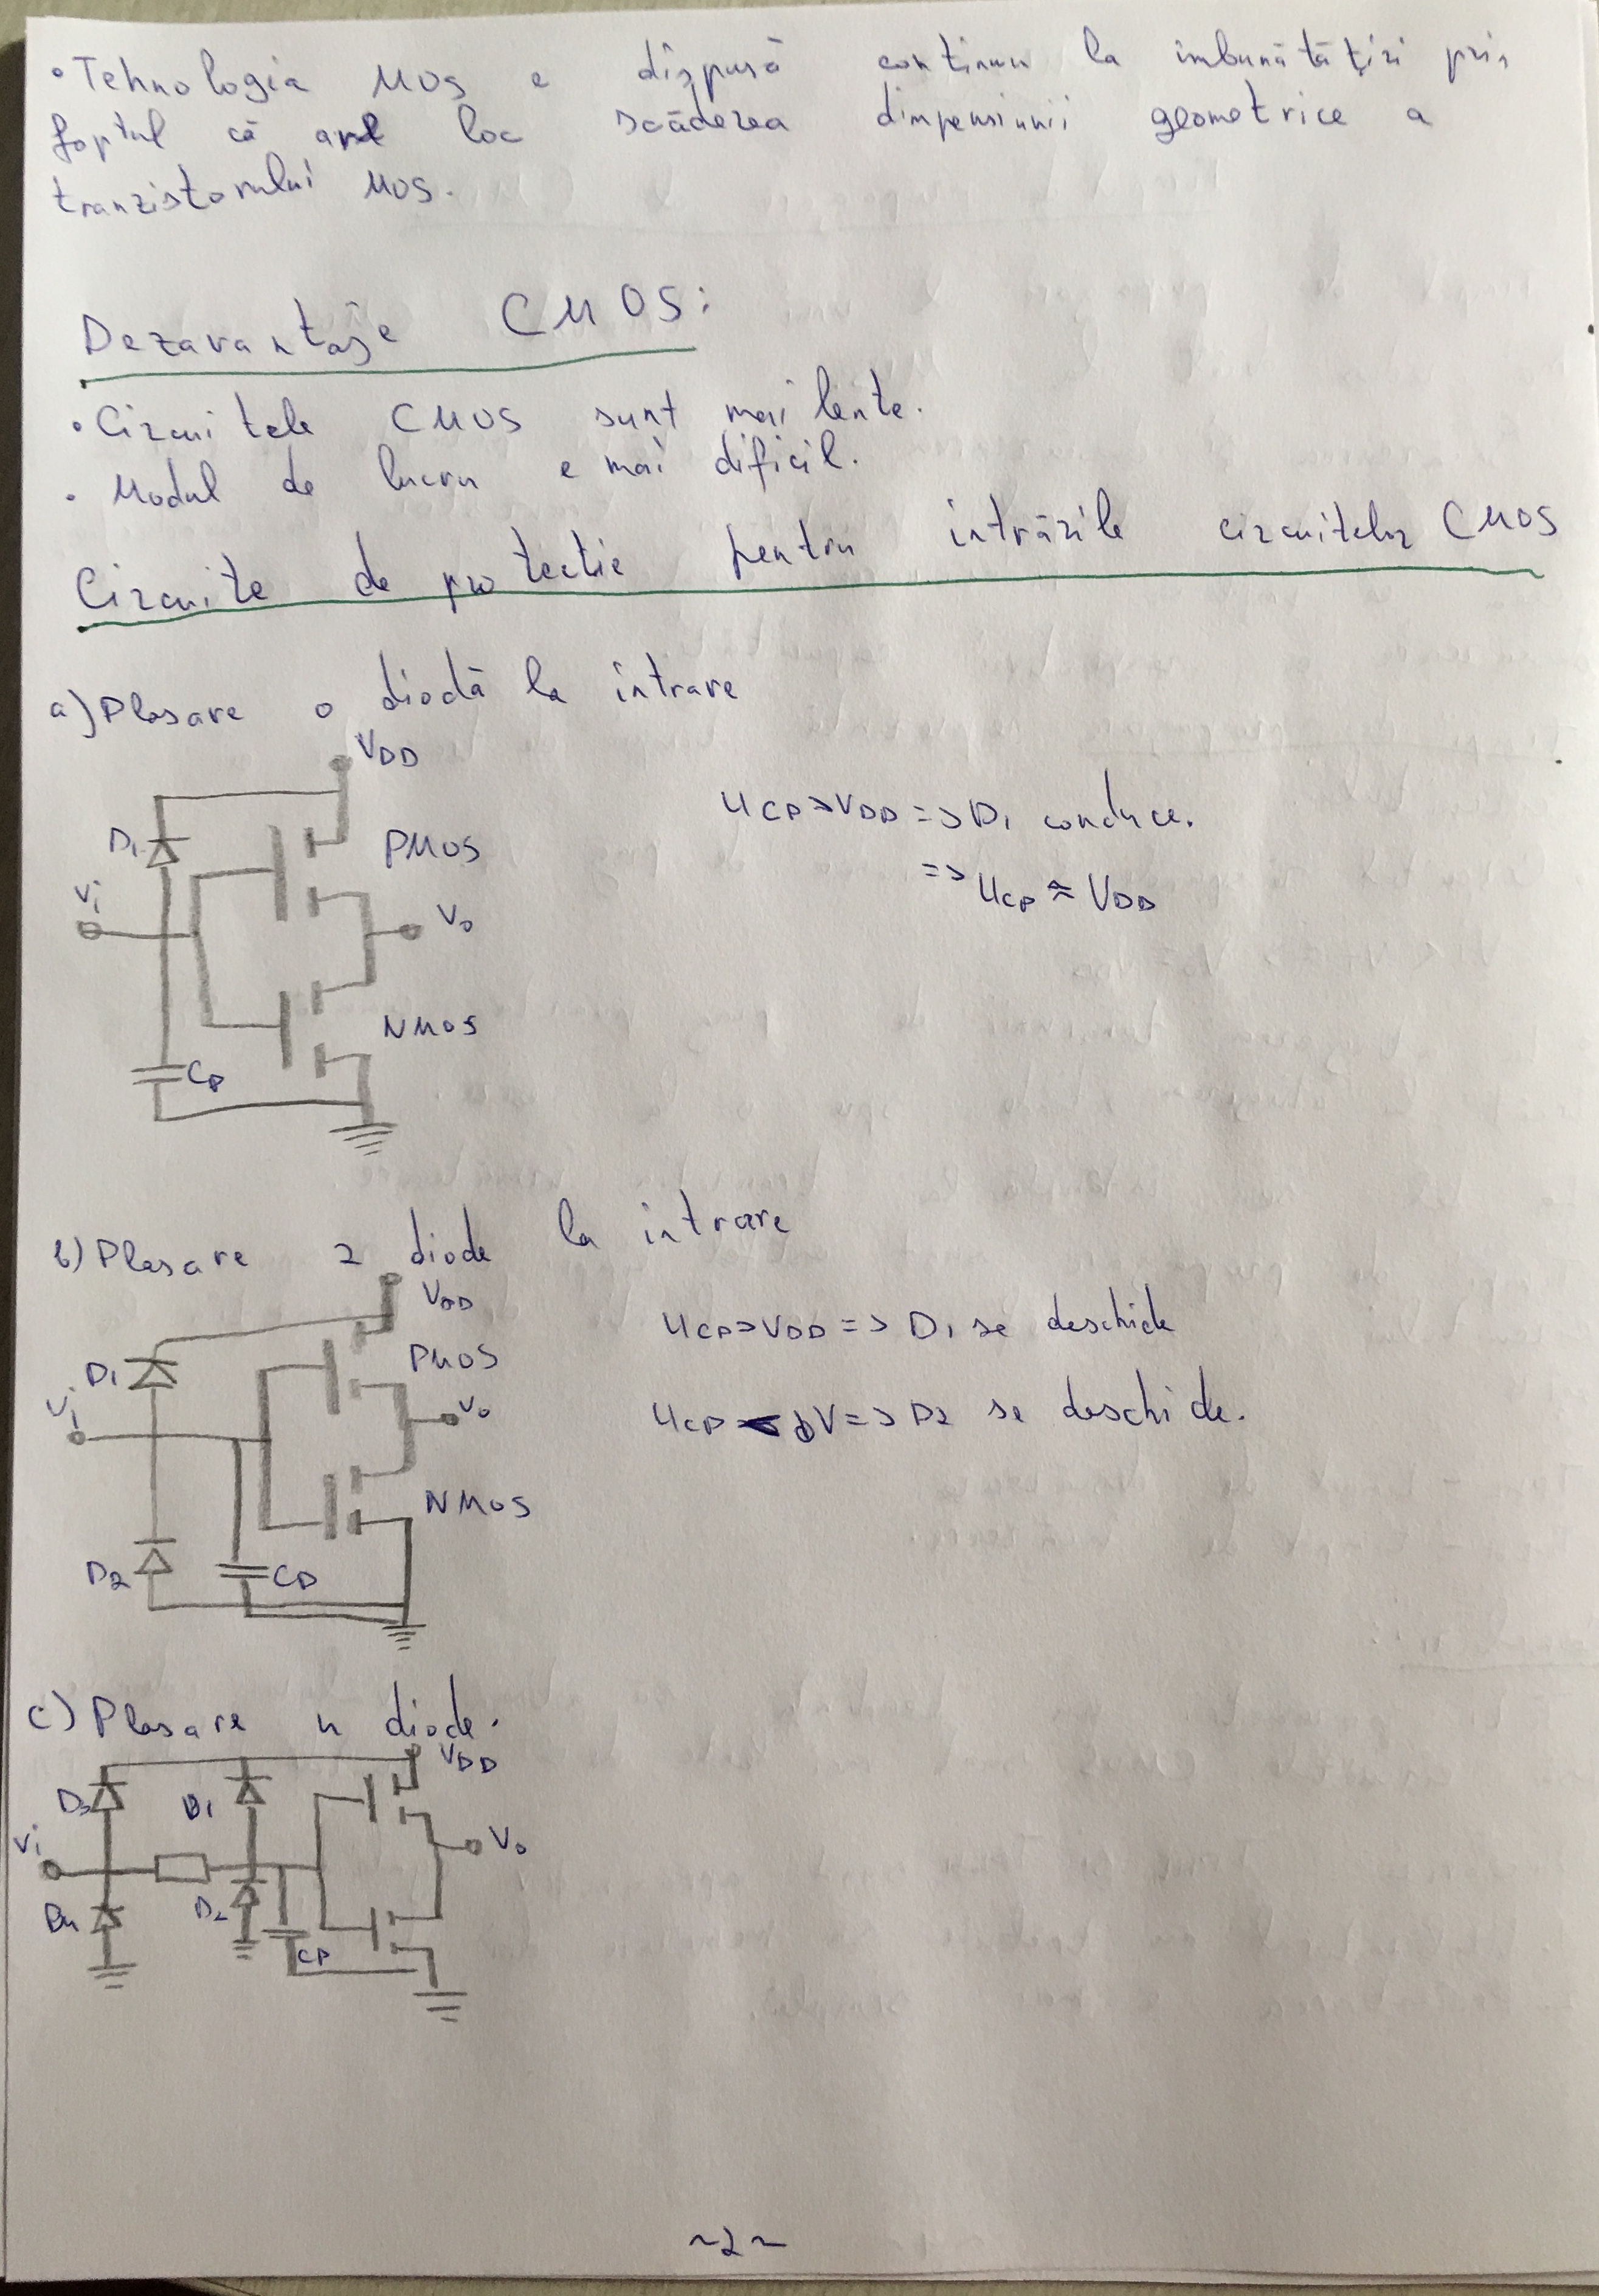 • Tehnologia MOS e dispusă continuu la imbunătățiri prin
faptul că are loc scăderea dimpensiunii geometrice a
tranzistorului MOS.
Dezavantaje CMOS:
• Circuitele CMOS sunt mai lente.
• Modul de lucru e mai dificil.
Circuite de protectie pentru intrările circuitelor CMOS
a) Plasare o diodă la intrare
VDD
D1
PMOS
UCP>VDD => D1 conduce.
=> UCP ≈ VDD
Vi
Vo
NMOS
CP
b) Plasare 2 diode la intrare
VDD
UCP>VDD => D1 se deschide
D1
PMOS
Vi
Vo
UCP < 0V => D2 se deschide.
NMOS
D2
CP
c) Plasare n diode.
VDD
D3
D1
Vi
Vo
D4
D2
CP
~2~